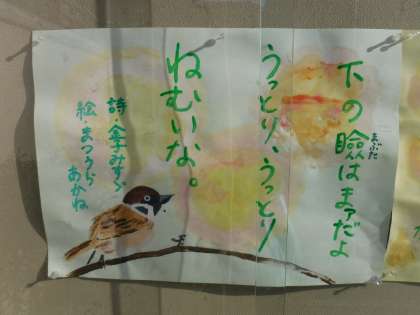 下の瞼はまァだよ
まぶた
うっとり、うっとり
ねむいな。
詩・金子みすゞ
絵・まつうら
あかね